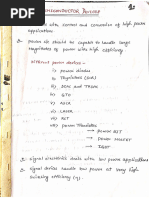 SEMICONDUCTOR DEVICES
deals with, control and conversion of high power
applications
2. power ckt should be capable to handle large
magnitudes of power with high efficiency
different power devices :-
i) power diodes
ii) Thyristors (SCR)
iii) SCR and TRIAC
iv) GTO
v) ASCR
vi) LASCR
vii) RCT
viii) power Transistor
→ power BJT
→ power MOSFET
→ IGBT
3. signal electronics deals with low power applications
signal devices handle low power at very high
switching efficiency (η).